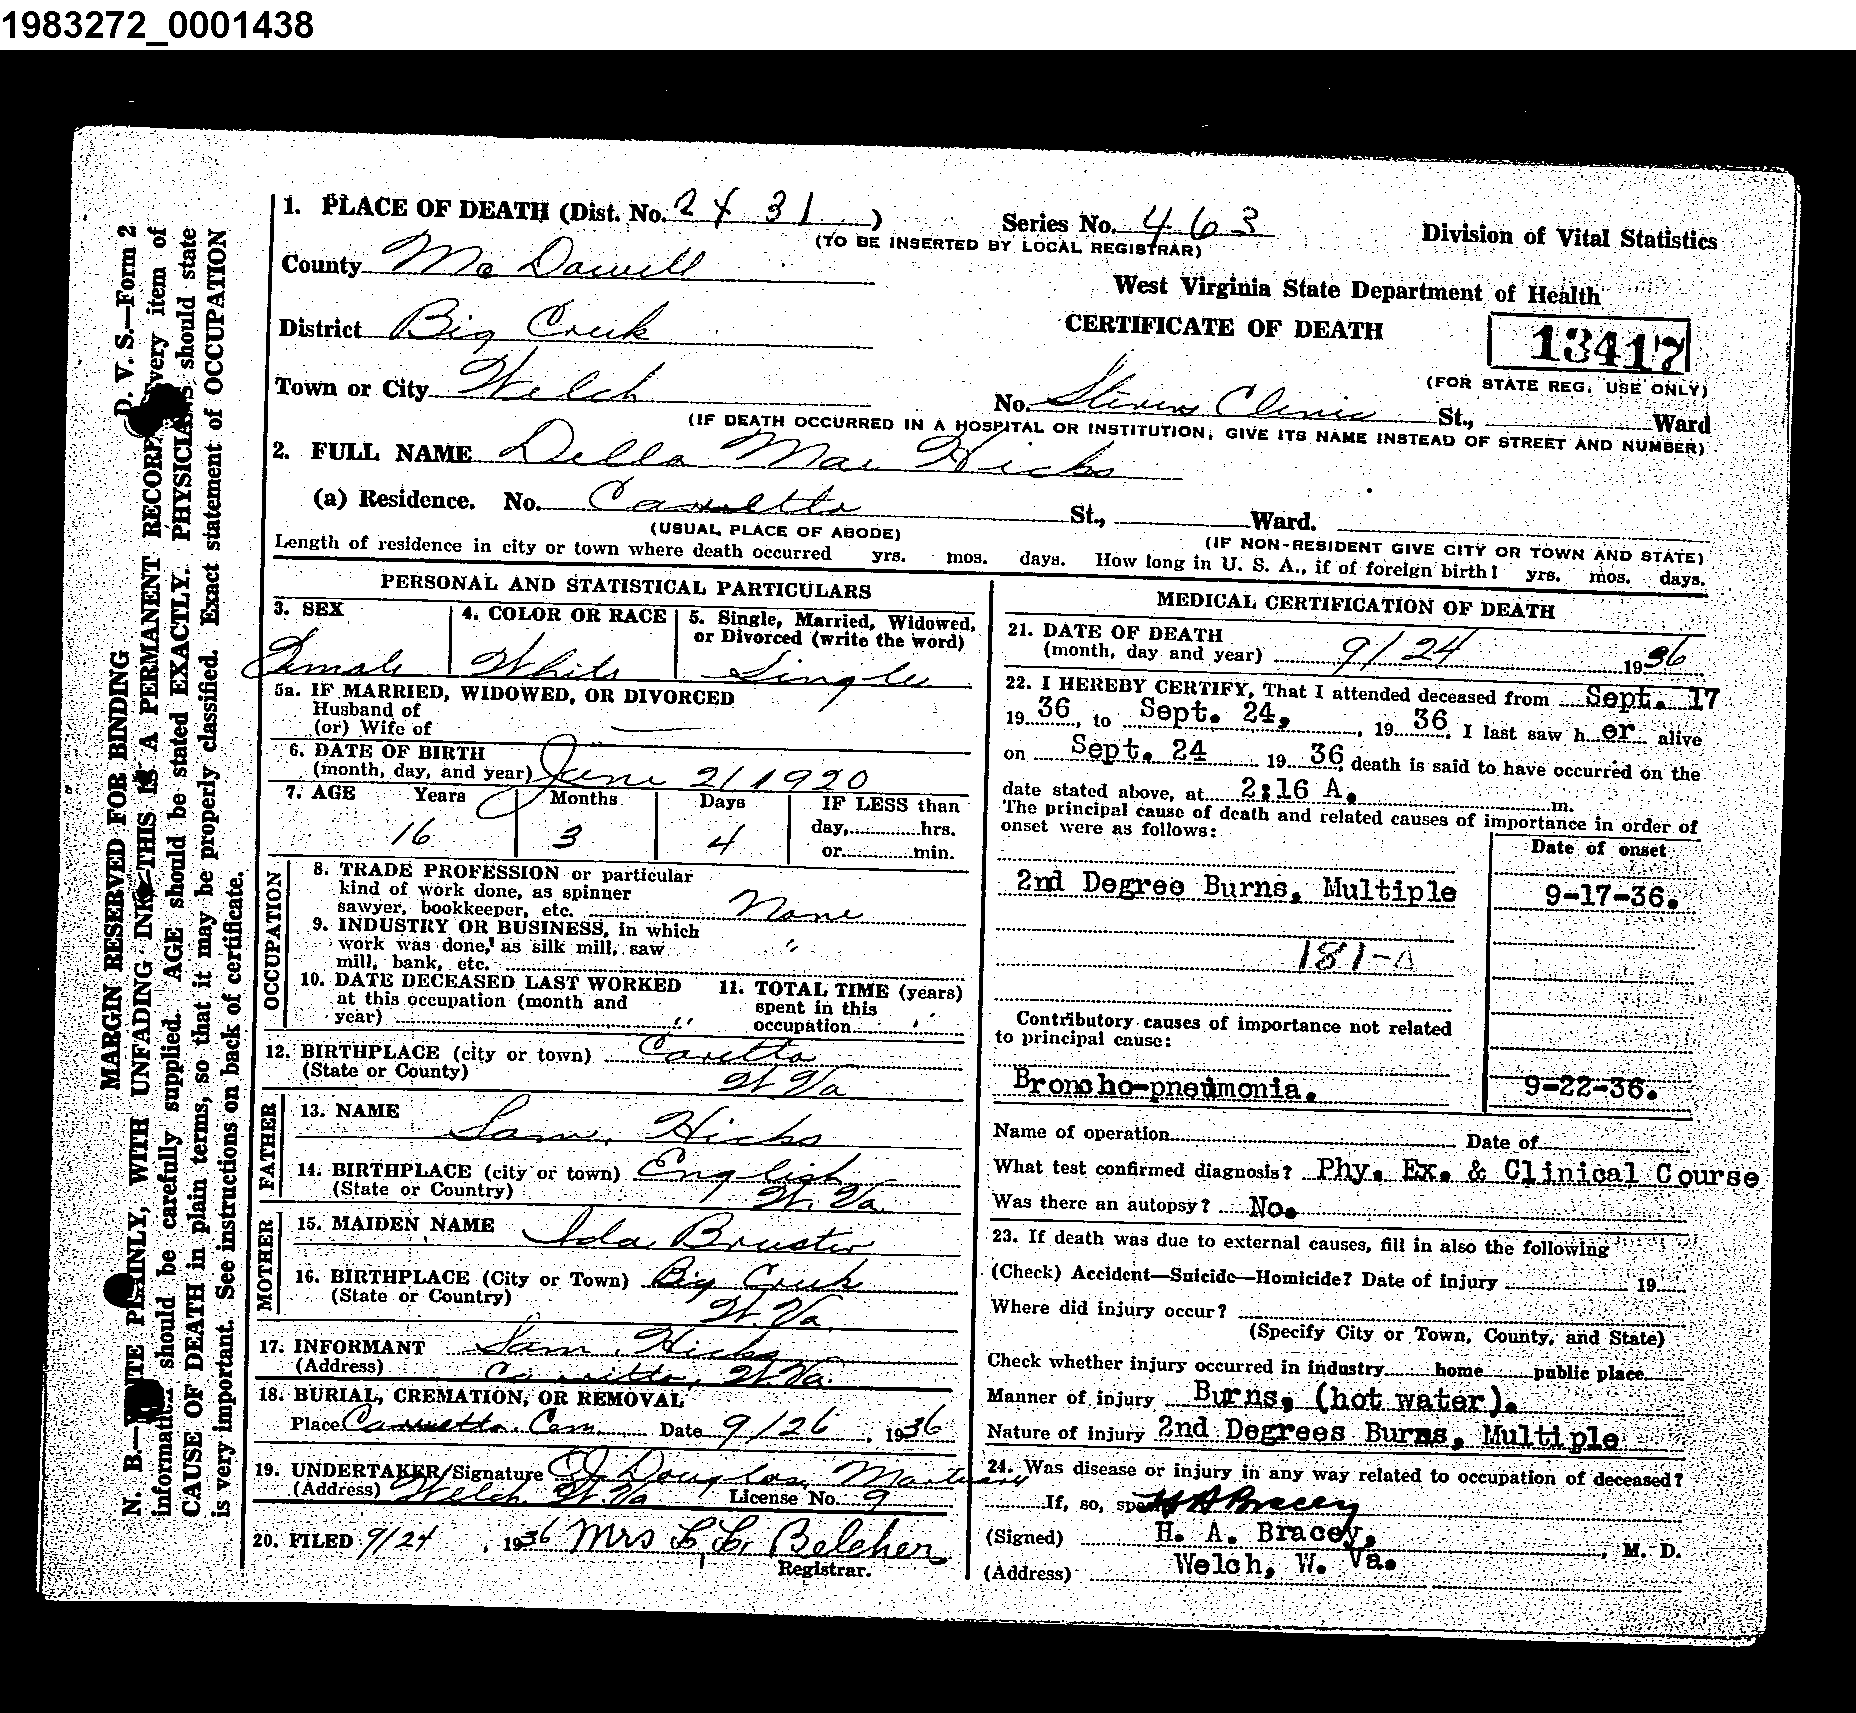 1983272_0001438
1. PLACE OF DEATH (Dist. No. 2431)
Series No. 463
(TO BE INSERTED BY LOCAL REGISTRAR)
Division of Vital Statistics
County Mc Dowell
West Virginia State Department of Health
District Big Creek
CERTIFICATE OF DEATH
13417
(FOR STATE REG. USE ONLY)
Town or City Welch
No. Stevens Clinic St., Ward
(IF DEATH OCCURRED IN A HOSPITAL OR INSTITUTION, GIVE ITS NAME INSTEAD OF STREET AND NUMBER)
2. FULL NAME Della Mae Hicks
(a) Residence. No. Carretta St., Ward.
(USUAL PLACE OF ABODE)
(IF NON-RESIDENT GIVE CITY OR TOWN AND STATE)
Length of residence in city or town where death occurred yrs. mos. days. How long in U. S. A., if of foreign birth? yrs. mos. days.
PERSONAL AND STATISTICAL PARTICULARS
3. SEX
Female
4. COLOR OR RACE
White
5. Single, Married, Widowed,
or Divorced (write the word)
Single
5a. IF MARRIED, WIDOWED, OR DIVORCED
Husband of
(or) Wife of —
6. DATE OF BIRTH
(month, day, and year) June 21 1920
7. AGE Years Months Days IF LESS than
16 3 4 day, hrs.
or min.
OCCUPATION
8. TRADE PROFESSION or particular
kind of work done, as spinner
sawyer, bookkeeper, etc. None
9. INDUSTRY OR BUSINESS, in which
work was done, as silk mill, saw
mill, bank, etc. "
10. DATE DECEASED LAST WORKED
at this occupation (month and
year) "
11. TOTAL TIME (years)
spent in this
occupation "
12. BIRTHPLACE (city or town) Caretta
(State or County) W. Va
FATHER
13. NAME
Sam Hicks
14. BIRTHPLACE (city or town) English
(State or Country) W. Va.
MOTHER
15. MAIDEN NAME Ida Bruster
16. BIRTHPLACE (City or Town) Big Creek
(State or Country) W. Va.
17. INFORMANT Sam Hicks
(Address) Carretta, W. Va.
18. BURIAL, CREMATION, OR REMOVAL
Place Carretta Cem. Date 9/26, 1936
19. UNDERTAKER/Signature O J Douglas Mortuary
(Address) Welch W Va License No. 9
20. FILED 9/24, 1936 Mrs L. L. Belcher
Registrar.
MEDICAL CERTIFICATION OF DEATH
21. DATE OF DEATH
(month, day and year) 9/24 1936
22. I HEREBY CERTIFY, That I attended deceased from Sept. 17
1936, to Sept. 24, 1936. I last saw her alive
on Sept. 24 1936, death is said to have occurred on the
date stated above, at 2:16 A. m.
The principal cause of death and related causes of importance in order of
onset were as follows:
Date of onset
2nd Degree Burns, Multiple 9-17-36.
181-
Contributory causes of importance not related
to principal cause:
Broncho-pneumonia. 9-22-36.
Name of operation Date of
What test confirmed diagnosis? Phy. Ex. & Clinical Course
Was there an autopsy? No.
23. If death was due to external causes, fill in also the following
(Check) Accident—Suicide—Homicide? Date of injury 19
Where did injury occur?
(Specify City or Town, County, and State)
Check whether injury occurred in industry home public place
Manner of injury Burns, (hot water).
Nature of injury 2nd Degrees Burns, Multiple
24. Was disease or injury in any way related to occupation of deceased?
If, so, spec H A Bracey
(Signed) H. A. Bracey, M. D.
(Address) Welch, W. Va.
D. V. S.—Form 2
MARGIN RESERVED FOR BINDING
N. B.—WRITE PLAINLY, WITH UNFADING INK—THIS IS A PERMANENT RECORD. Every item of
information should be carefully supplied. AGE should be stated EXACTLY. PHYSICIANS should state
CAUSE OF DEATH in plain terms, so that it may be properly classified. Exact statement of OCCUPATION
is very important. See instructions on back of certificate.